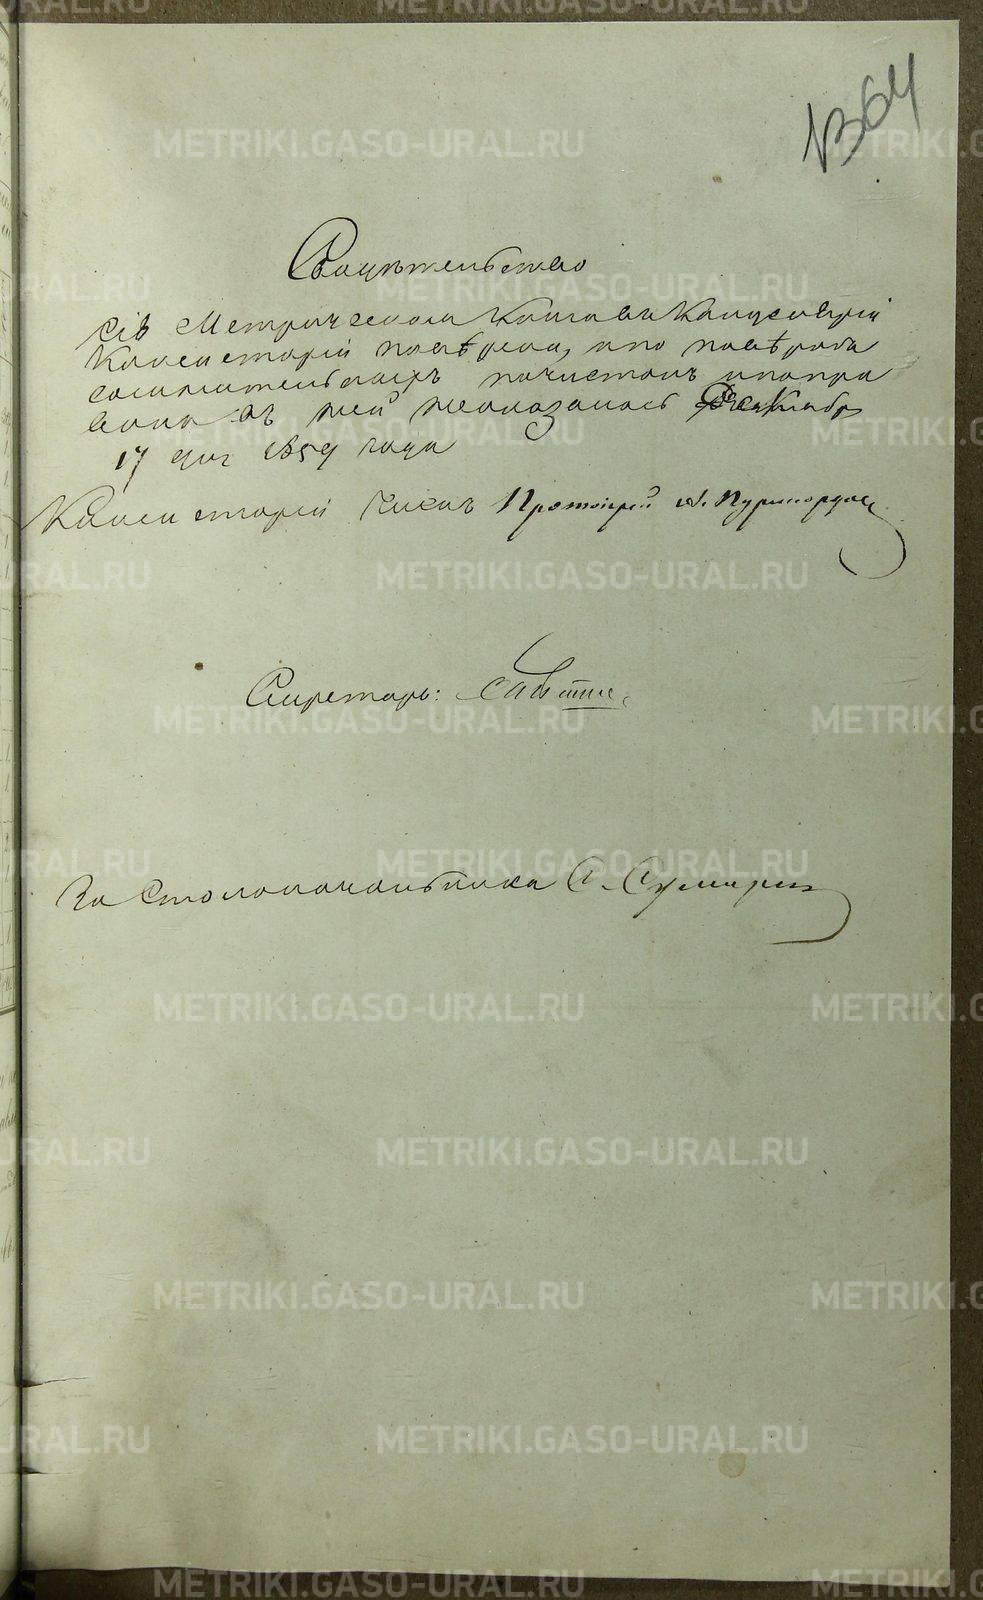 1364
Свидѣтельство
Сія Метрическая Книга въ Канцеляріи
Консисторіи повѣрена, и по повѣркѣ
сомнительныхъ почистокъ и попра
вокъ въ ней неоказалось Октября
17 дня 1859 года
Консисторіи Членъ Протоіерей
Секретарь:
За Столоначальника С.
METRIKI.GASO-URAL.RU